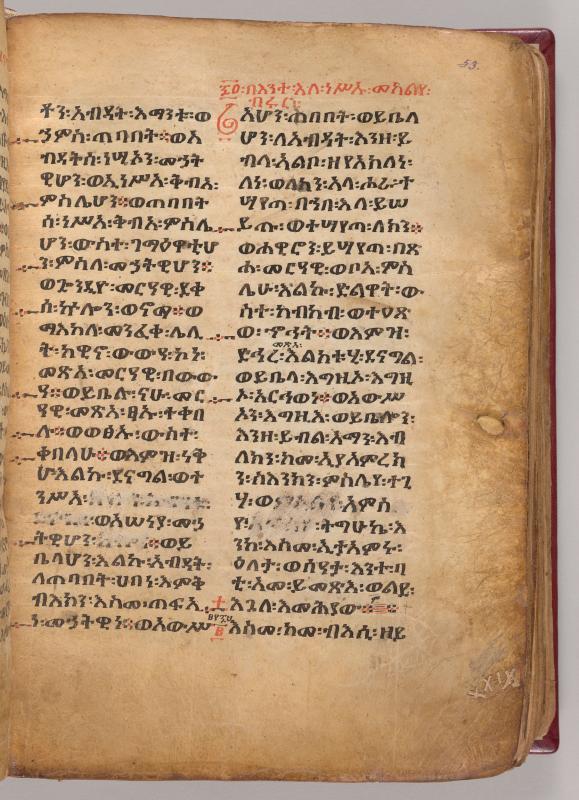 ቶን፡አብዳት፡እማንቱ፡ወ
ኀምስ፡ጠባባት፡፡ወአ
ብዳትሰ፡ነሢኦን፡መኃት
ዊሆን፡ወኢነሥአ፡ቅብአ፡
ምስሌሆን፡ወጠባባት
ሰ፡ነሥአ፡ቅብአ፡ምስሌ
ሆን፡ውስተ፡ገማዕዊሆ
ን፡ምስለ፡መኃትዊሆን፡፡
ወጐንደየ፡መርዓዊ፡ደቀ
ሳ፡ኵሎን፡ወኖማ፡፡ወ
ማእከለ፡መንፈቀ፡ሌሊ
ት፡ከዊኖ፡ውውዓ፡ኮነ፡
መጽአ፡መርዓዊ፡በውው
ዓ፡፡ወይቤሉ፡ናሁ፡መር
ዓዊ፡መጽአ፡ፃኡ፡ተቀበ
ሉ፡፡ወወፅኡ፡ውስተ፡
ቀበላሁ፡፡ወእምዝ፡ነቅ
ሃ፡እልኩ፡ደናግል፡ወት
ንሥአ፡
ወአሠነያ፡መኃ
ትዊሆን፡ወይ
ቤላሆን፡እልኩ፡አብዳት፡
ለጠባባት፡ሀባነ፡እምቅ
ብእክን፡እስመ፡ጠፍአ
ነ፡መኃትዊነ፡፡ወአውሥ
በእንተ፡እለ፡ነሥኡ፡መካልየ፡
ብሩር፡
አሆን፡ጠባባት፡ወይቤላ
ሆን፡ለአብዳት፡እንዘ፡ይ
ብላ፡አልቦ፡ዘየአክለነ፡
ለነ፡ወለክን፡አላ፡ሑራ፡ተ
ሣየጣ፡በኀበ፡እለ፡ይሠ
ይጡ፡ወተሣየጣ፡ለክን፡፡
ወሐዊሮን፡ይሣየጣ፡በጽ
ሐ፡መርዓዊ፡ወቦአ፡ምስ
ሌሁ፡እልኩ፡ድልዋት፡ው
ስተ፡ከብካብ፡ወተዐጽ
ወ፡ኆኅት፡፡ወእምዝ፡
መጽአ፡
ድኅረ፡እልክቱሂ፡ደናግል፡
ወይቤላ፡እግዚኦ፡እግዚ
ኦ፡አርኅወነ፡፡ወአውሥ
ኦን፡እግዚእ፡ወይቤሎን፡
እንዘ፡ይብል፡አማን፡እብ
ለክን፡ከመ፡ኢያአምረክ
ን፡ስእንክን፡ምስሌየ፡ተጊ
ሃ፡እምስ
የ፡ትግሁኬ፡እ
ንከ፡እስመ፡ኢታአምሩ፡
ዕለተ፡ወሰዓተ፡እንተ፡ባ
ቲ፡እመ፡ይመጽእ፡ወልደ፡
እጓለ፡እመሕያው፡፡
እስመ፡ከመ፡ብእሲ፡ዘይ
53.
XXIX